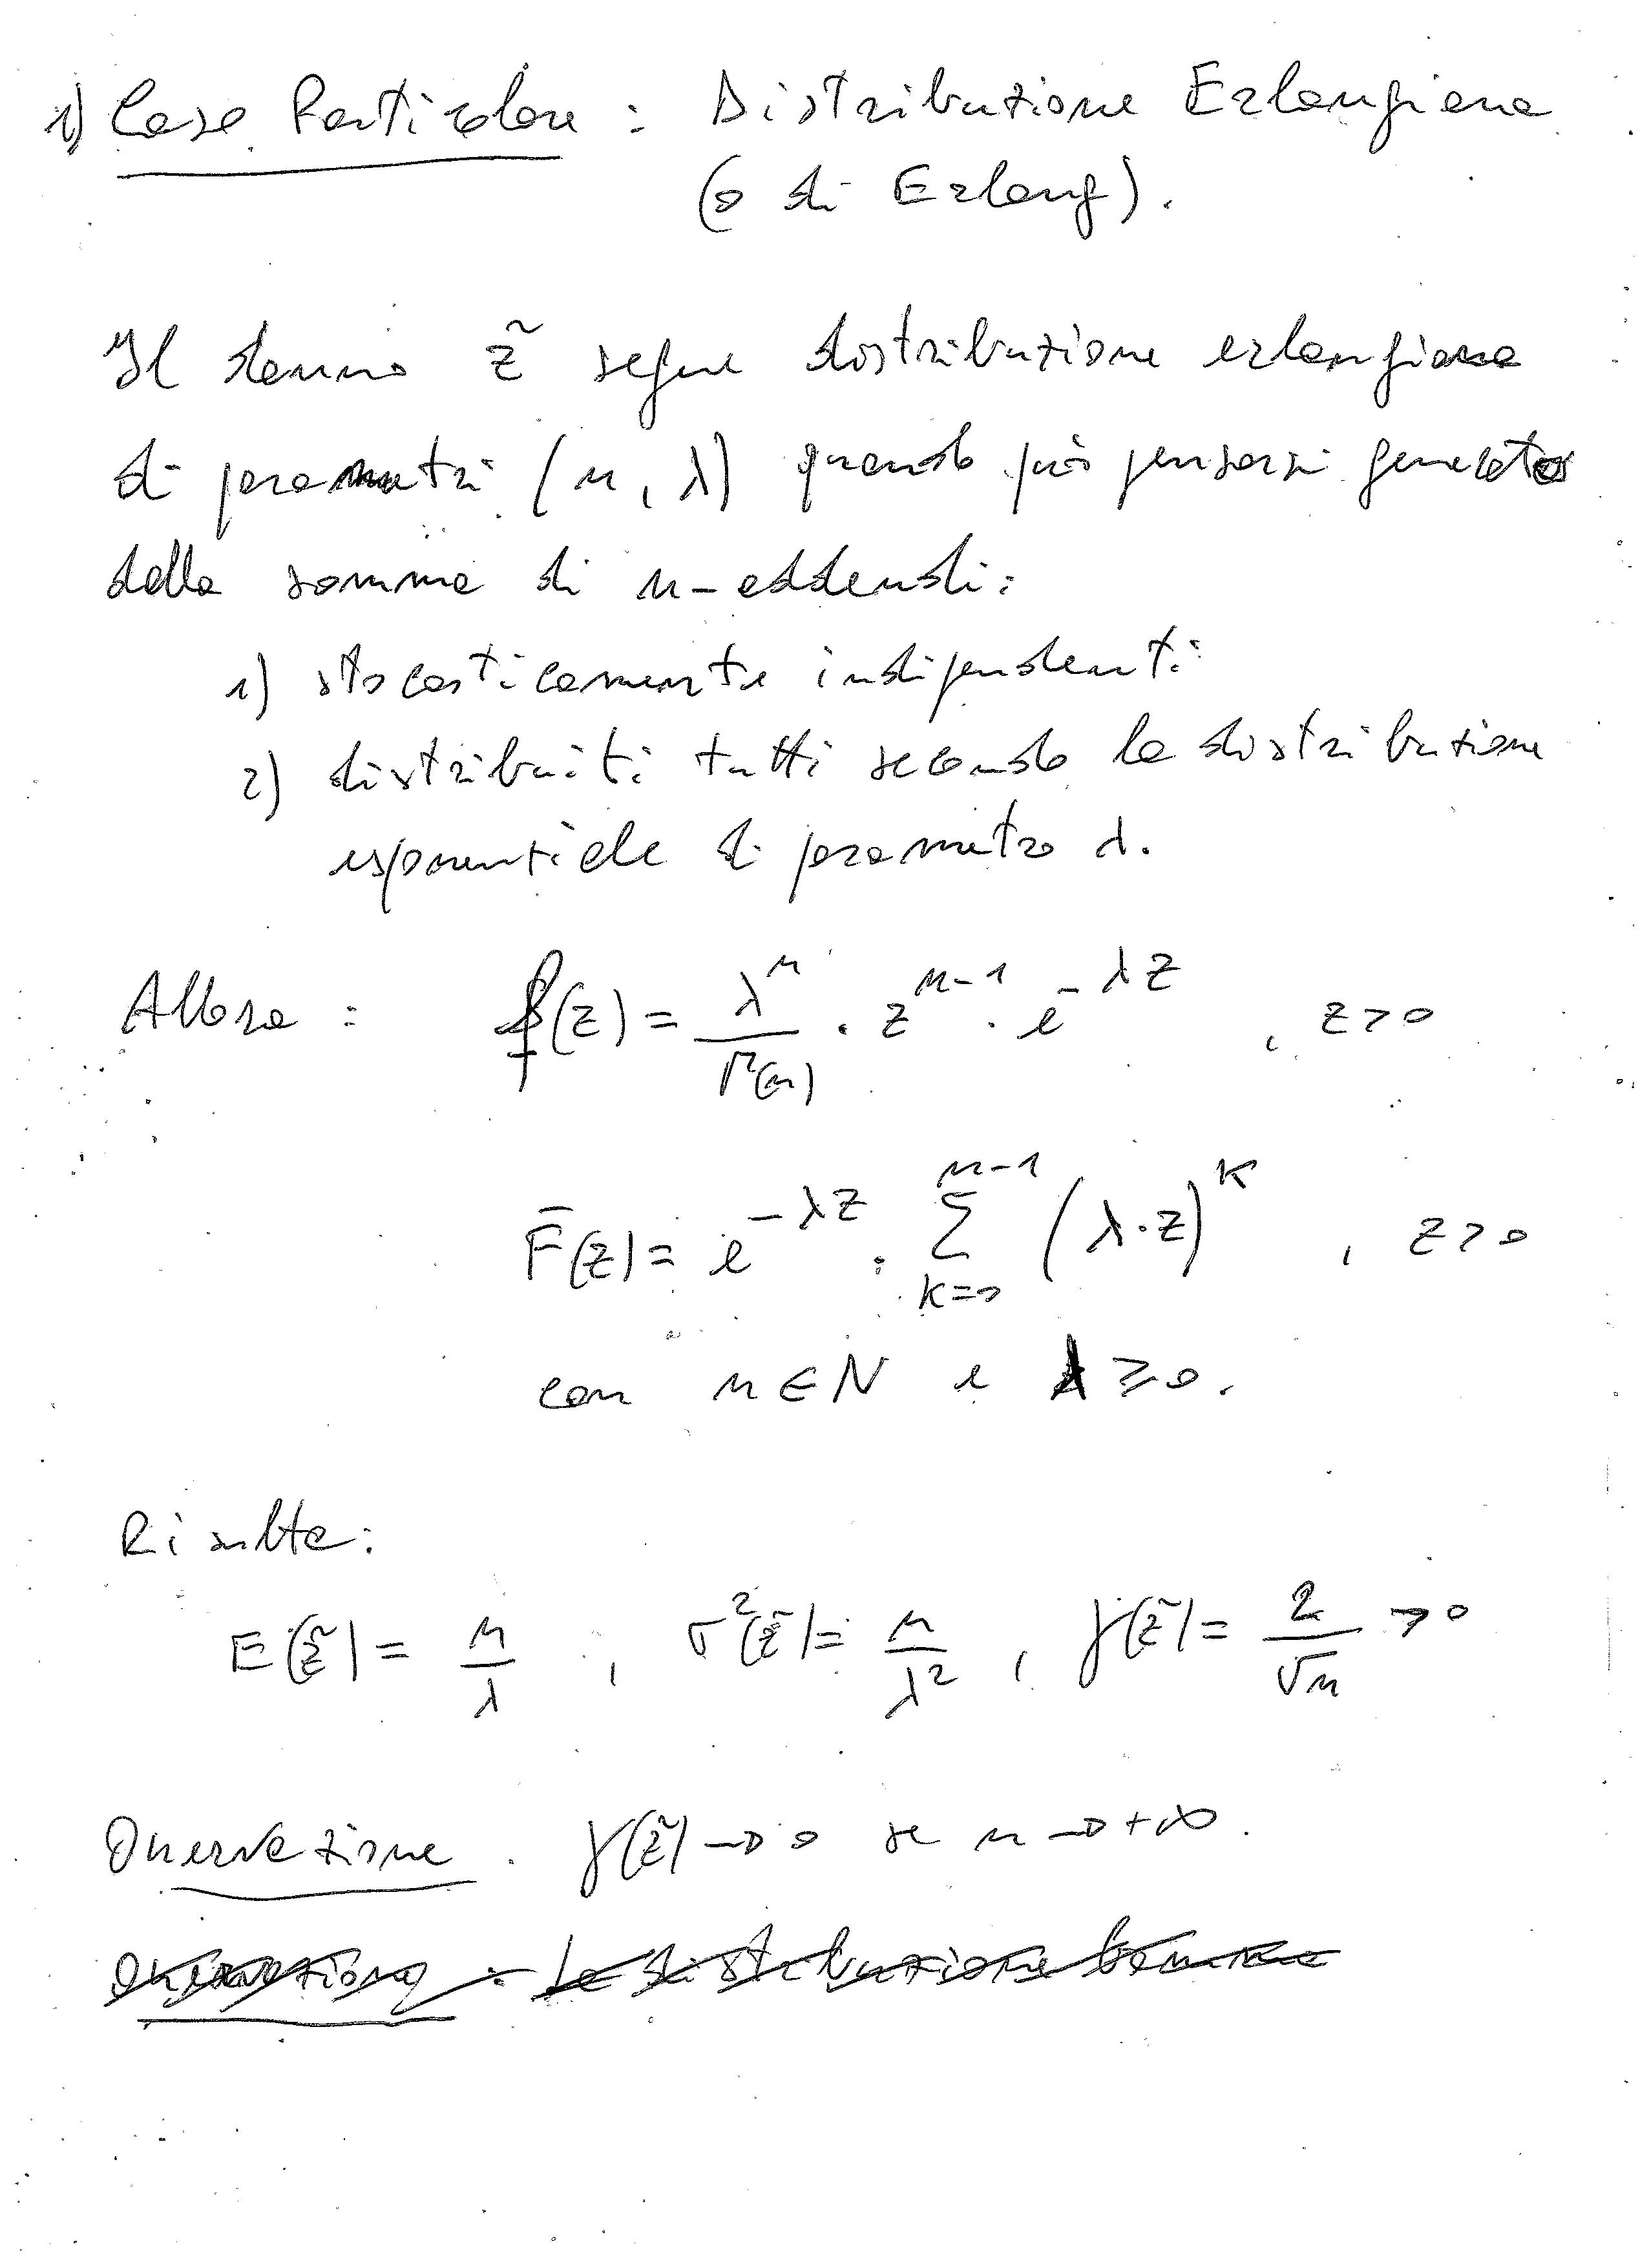 1) Caso Particolare : Distribuzione Erlangiana
(o di Erlang).
Il danno z̃ segue distribuzione erlangiana
di parametri (n, λ) quando può pensarsi generato
dalla somma di n-addendi:
1) stocasticamente indipendenti
2) distribuiti tutti secondo la distribuzione
esponenziale di parametro λ.
Allora : f(z) = λ^n / Γ(n) · z^(n-1) · e^(-λz) , z>0
F̄(z) = e^(-λz) · Σ_{k=0}^{n-1} (λ·z)^k , z>0
con n∈N e λ≥0.
Risulta:
E(z̃) = n/λ , σ²(z̃) = n/λ² , γ(z̃) = 2/√n >0
Osservazione . γ(z̃) → 0 se n → +∞.
Osservazione : La distribuzione Gamma